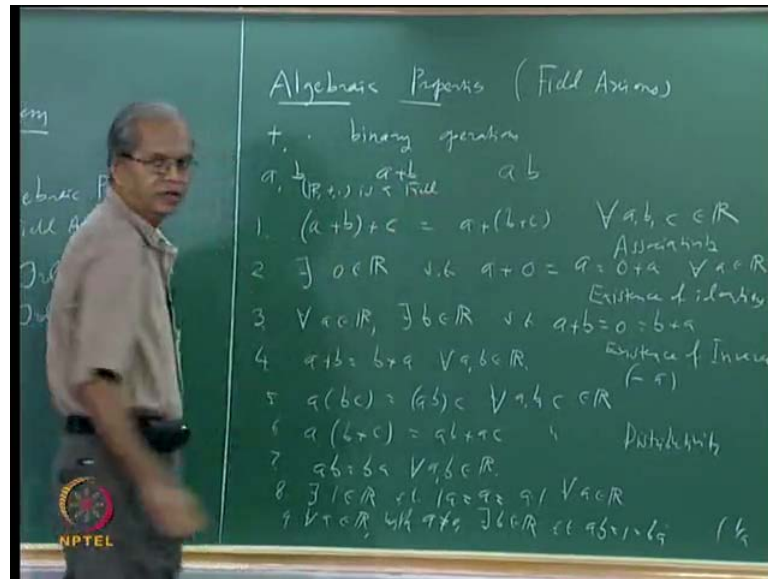 Algebraic Properties (Field Axioms)
+, · binary operation
a, b a+b ab
(ℝ,+,·) is a Field
1. (a+b)+c = a+(b+c) ∀ a,b,c ∈ ℝ
Associativity
2 ∃ 0∈ℝ s.t. a+0 = a = 0+a ∀ a∈ℝ
Existence of identity
3. ∀ a∈ℝ, ∃ b∈ℝ s.t. a+b=0=b+a
Existence of Inverse
(-a)
4 a+b = b+a ∀ a,b∈ℝ.
5 a(bc) = (ab)c ∀ a,b,c ∈ℝ
6 a(b+c) = ab+ac Distributivity
7 ab=ba ∀ a,b∈ℝ.
8 ∃ 1∈ℝ s.t. 1a=a=a1 ∀ a∈ℝ
9 ∀ a∈ℝ, with a≠0, ∃ b∈ℝ s.t. ab=1=ba (1/a
NPTEL